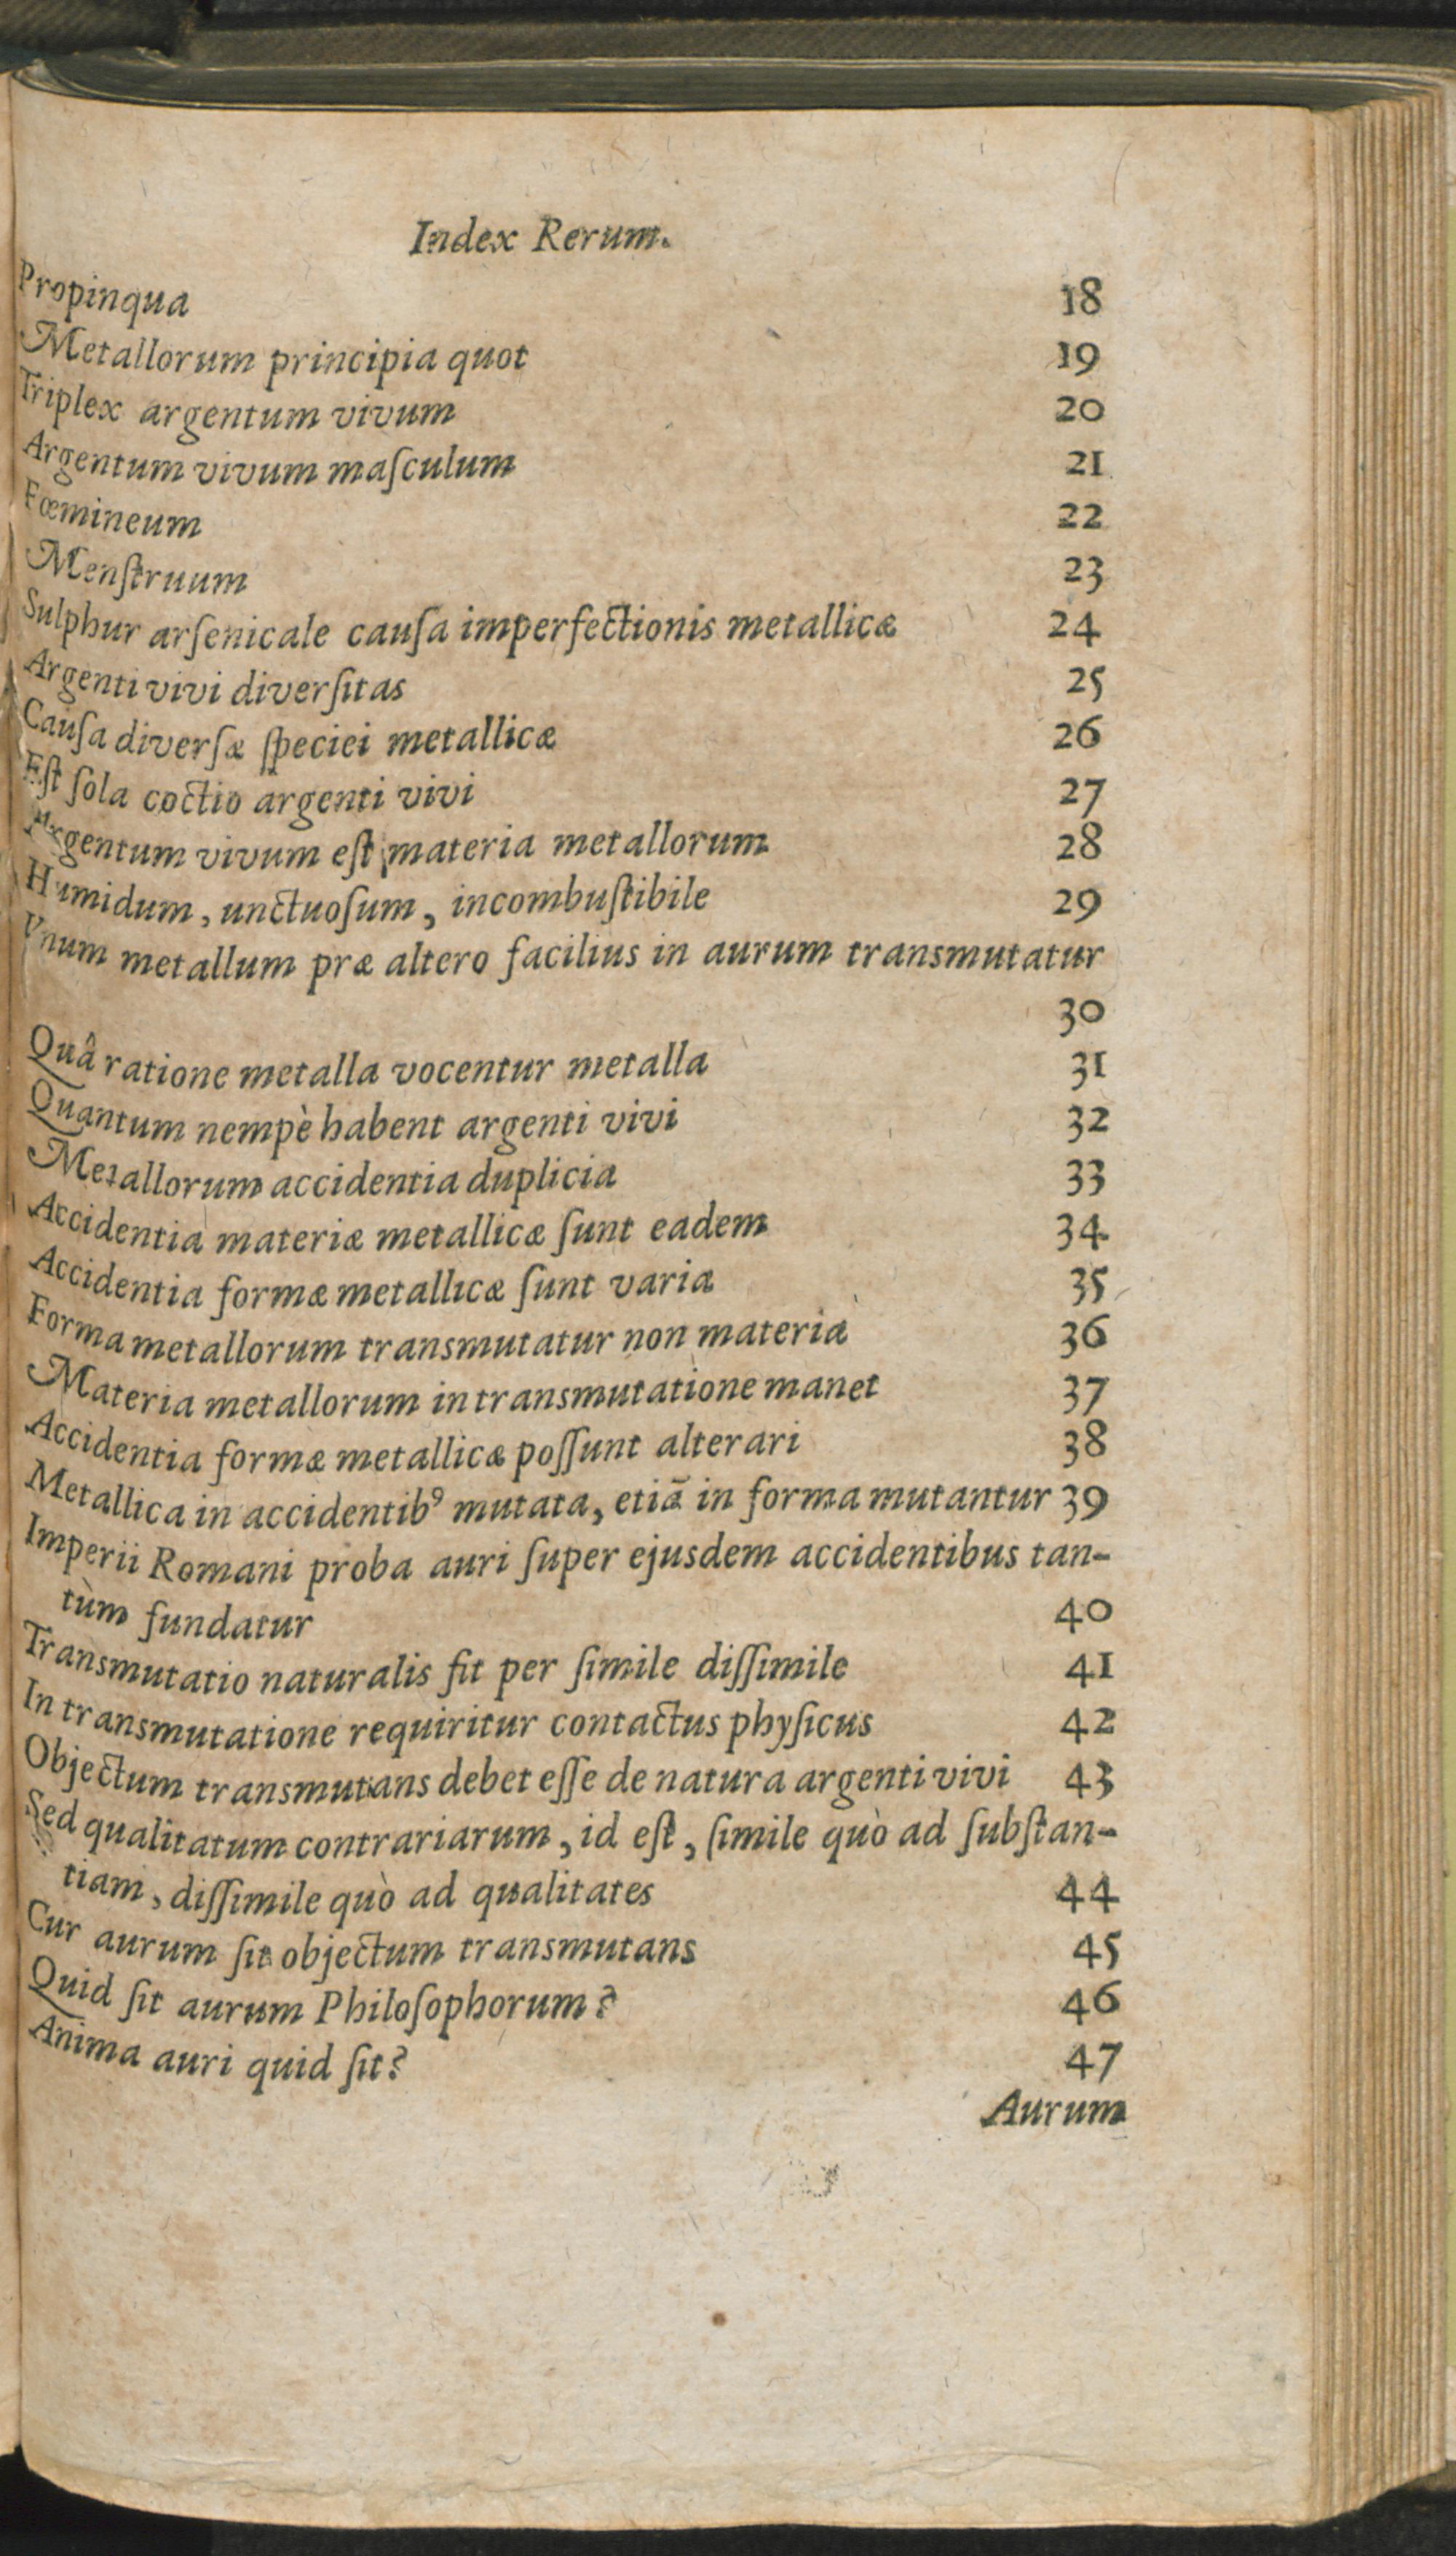 Index Rerum.
Propinqua 18
Metallorum principia quot 19
Triplex argentum vivum 20
Argentum vivum maſculum 21
Fœmineum 22
Menſtruum 23
Sulphur arſenicale cauſa imperfectionis metallicæ 24
Argenti vivi diverſitas 25
Cauſa diverſæ ſpeciei metallicæ 26
Eſt ſola coctio argenti vivi 27
Argentum vivum eſt materia metallorum 28
Humidum, unctuoſum, incombuſtibile 29
Vnum metallum præ altero facilius in aurum transmutatur
30
Quâ ratione metalla vocentur metalla 31
Quantum nempè habent argenti vivi 32
Metallorum accidentia duplicia 33
Accidentia materiæ metallicæ ſunt eadem 34
Accidentia formæ metallicæ ſunt varia 35
Forma metallorum transmutatur non materia 36
Materia metallorum in transmutatione manet 37
Accidentia formæ metallicæ poſſunt alterari 38
Metallica in accidentibꝰ mutata, etiã in forma mutantur 39
Imperii Romani proba auri ſuper ejusdem accidentibus tan-
tùm fundatur 40
Transmutatio naturalis fit per ſimile diſſimile 41
In transmutatione requiritur contactus phyſicus 42
Objectum transmutans debet eſſe de natura argenti vivi 43
Sed qualitatum contrariarum, id eſt, ſimile quò ad ſubſtan-
tiam, diſſimile quò ad qualitates 44
Cur aurum ſit objectum transmutans 45
Quid ſit aurum Philoſophorum? 46
Anima auri quid ſit? 47
Aurum